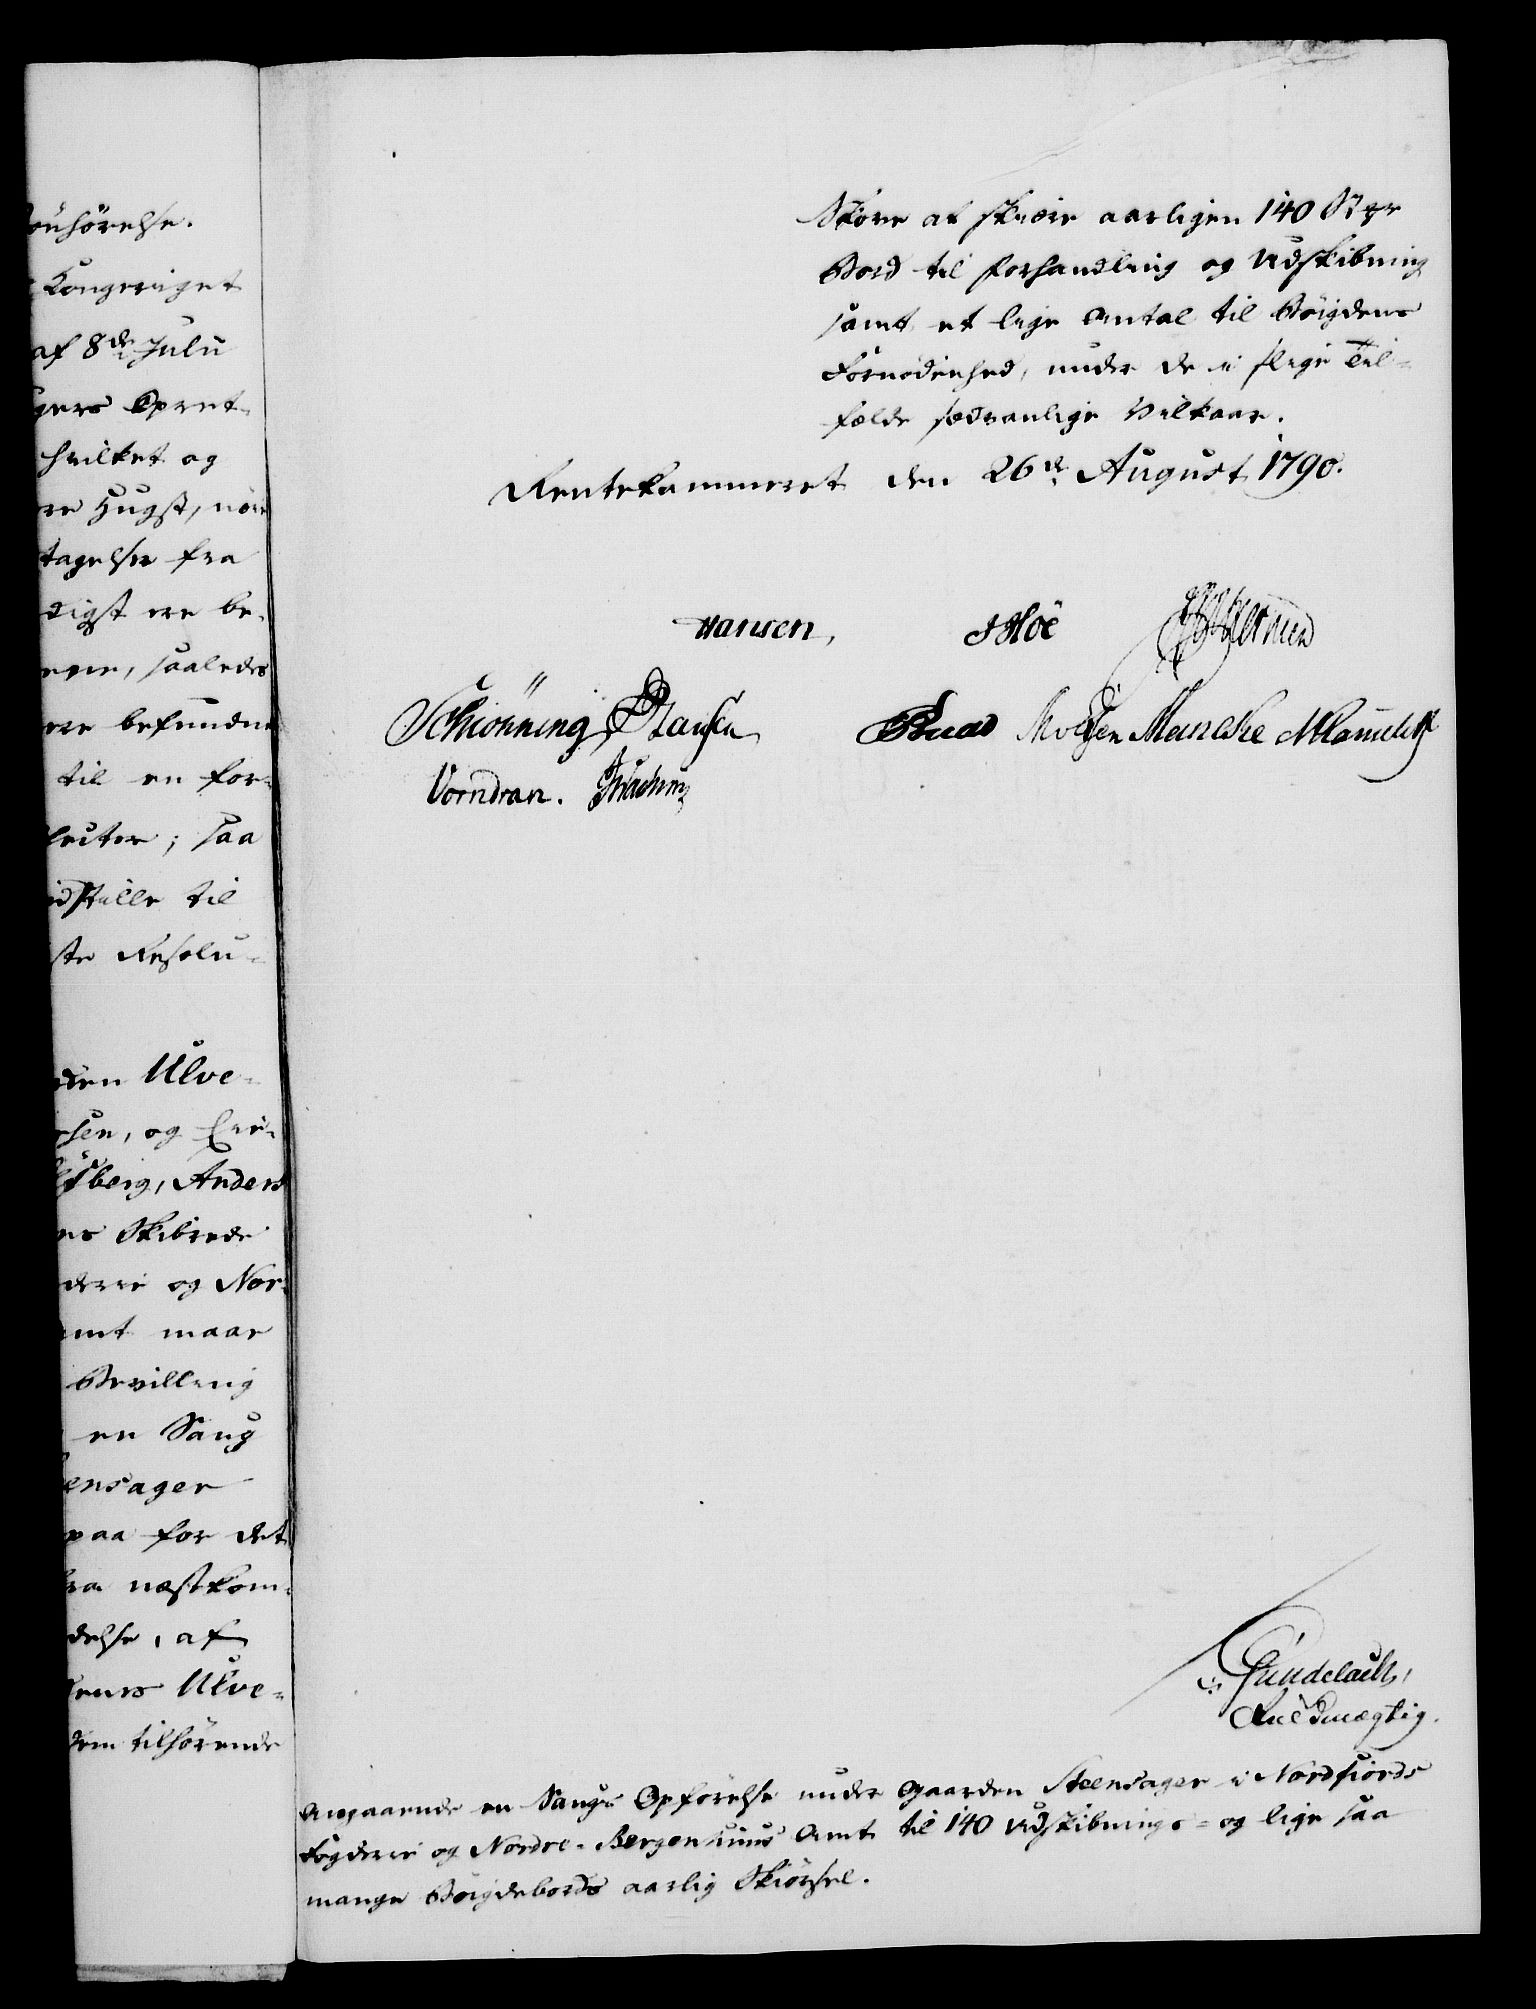 önhörelse.
Kongeriget
af 8de Julii
gers Opret-
hvilket og
re Hugst, nöie
tagelse fra
digst ere be-
eere, saaledes
ere befundne
til en for-
leiter; saa
dstille til
ste Resolu-
den Ulve-
sen, og
berg, Anders
ns Skibrede
derie og Nor-
mt maae
Bevilling
en Saug
ensager
paa for det
ra næstkom-
delse, af
eens Ulve-
dem tilhörende
Skove at skiære aarligen 140 Stkr
Bord til forhandling og Udskibning
samt et lige Antal til Böigdens
Fornödenhed, under de i slige Til-
fælde sædvanlige Vilkaar.
Rentekammeret den 26de August 1790.
Hansen, JHöe
Schiönning Hansen Knad Moësen Meincke
Vorndran.
Gundelach,
Fuldmægtig.
Angaaende en Saugs Opförelse under Gaarden Steensager i Nordfiords
Fogderie og Nordre-Bergenhuus Amt til 140 Udskibnings- og lige saa
mange Böigdebords aarlig Skiörsel.